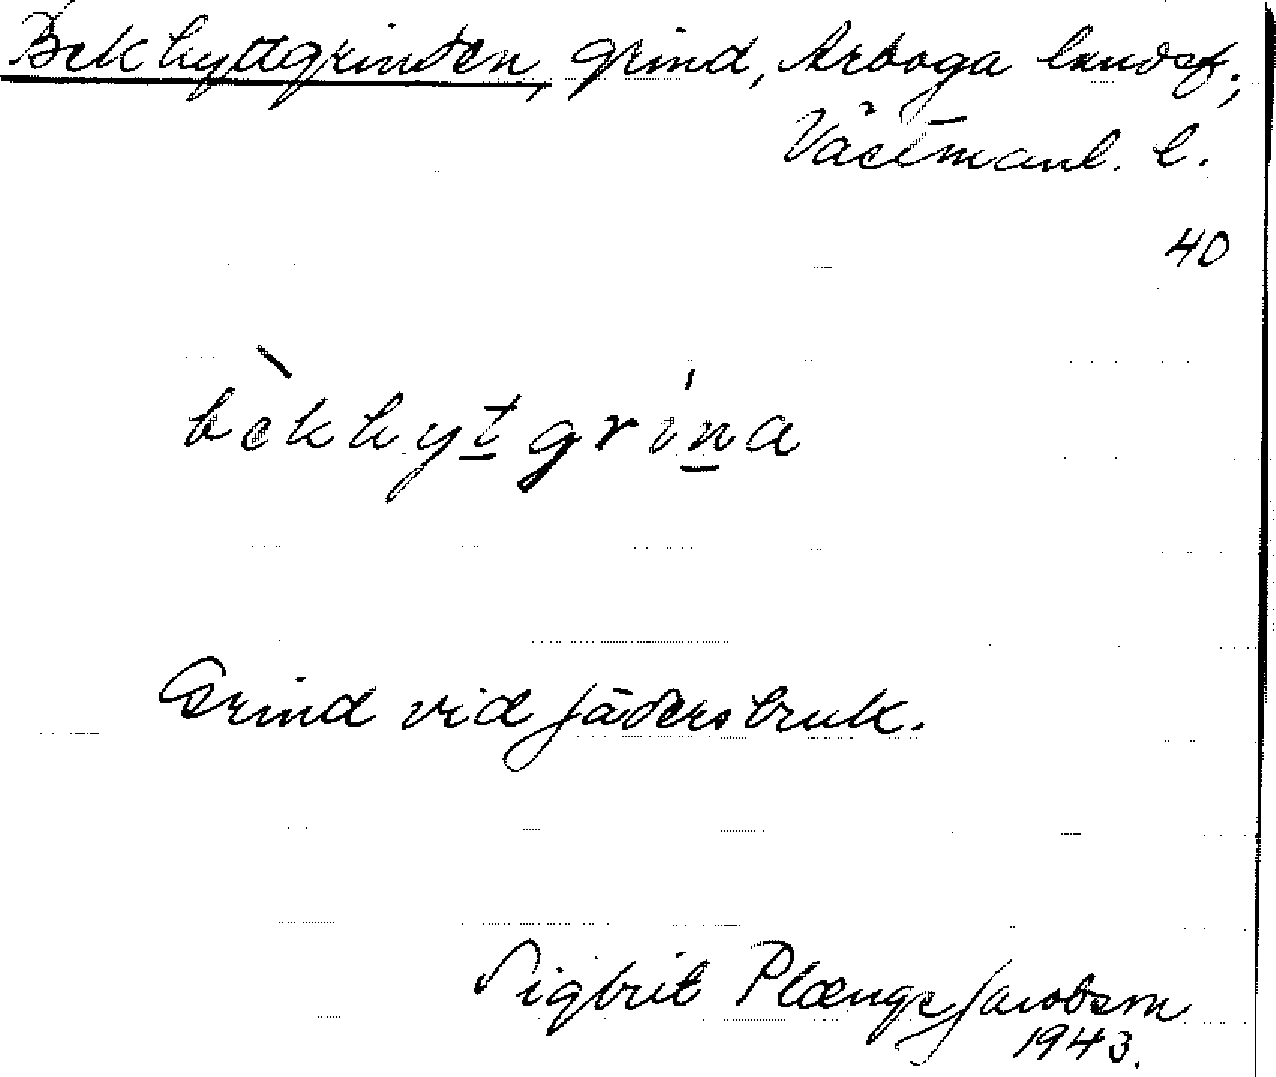 Bekhyttgrinden, grind, Arboga landsf.,
Västmanl. l.
40
bèkhytgrína
Grind vid Jädersbruk.
Sigbrit Plænge Jacobson
1943.